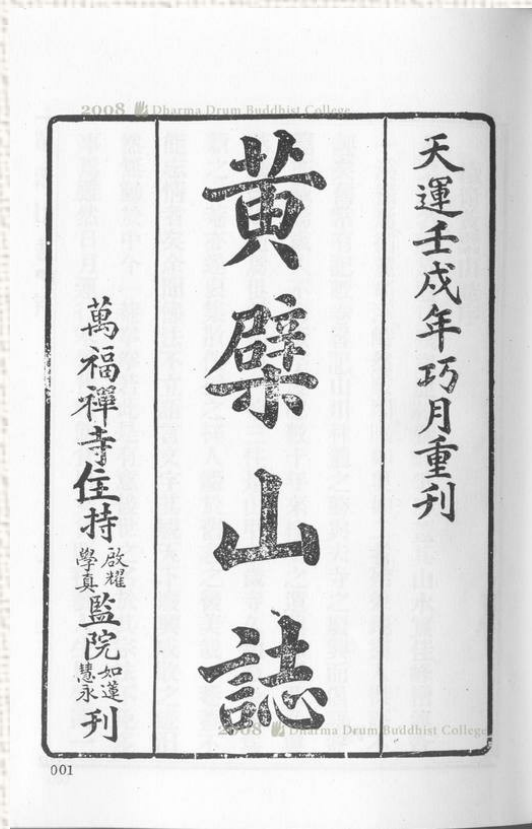 2008 Dharma Drum Buddhist College
天運壬戌年巧月重刊
黄檗山誌
萬福禪寺住持啟耀學真監院如蓮慧永刊
2008 Dharma Drum Buddhist College
001